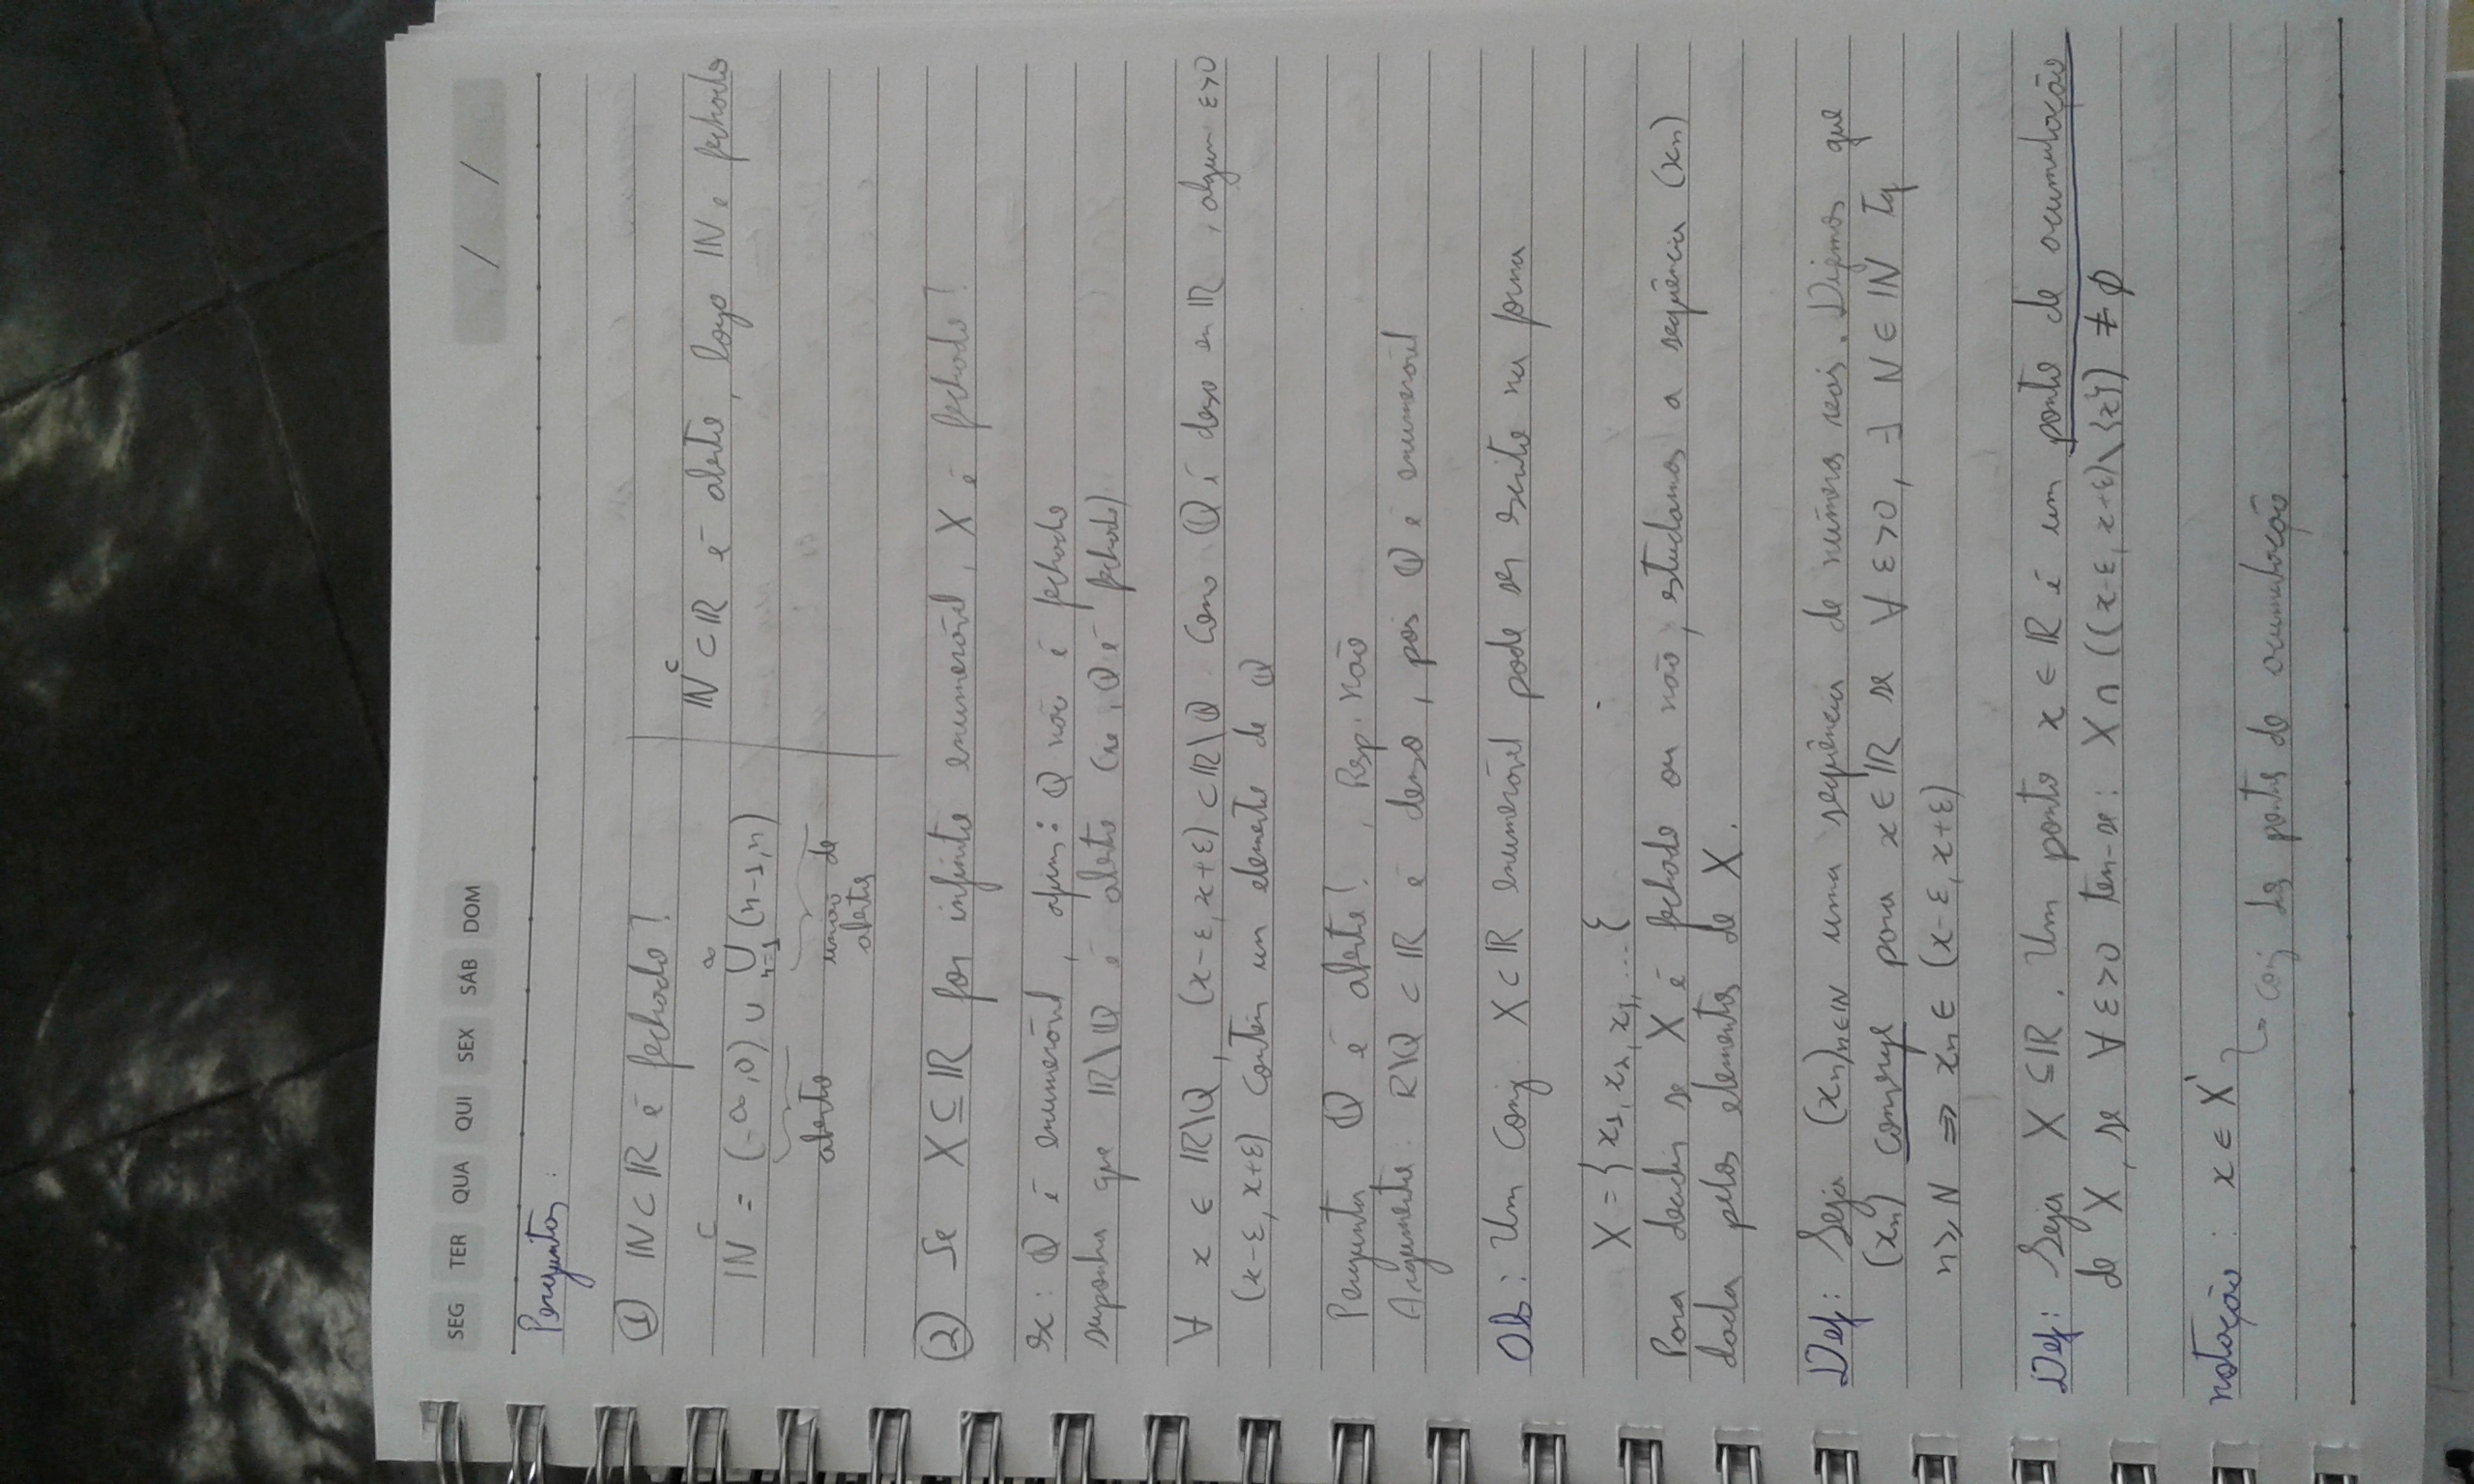 SEG TER QUA QUI SEX SÁB DOM / /
Perguntas:
① ℕ ⊂ ℝ é fechado?
ℕᶜ = (-∞,0) ∪ ⋃_{n=1}^{∞} (n-1,n)
aberto união de
abertos
ℕᶜ ⊂ ℝ é aberto, logo ℕ é fechado
② Se X ⊆ ℝ for infinito enumerável, X é fechado?
ex: ℚ é enumerável, afirm: ℚ não é fechado
suponha que ℝ\ℚ é aberto (ie, ℚ é fechado)
∀ x ∈ ℝ\ℚ, (x-ε, x+ε) ⊂ ℝ\ℚ. Como ℚ é denso em ℝ, algum ε>0
(x-ε, x+ε) contém um elemento de ℚ
Pergunta ℚ é aberto?, Resp. não
Argumento: ℝ\ℚ ⊂ ℝ é denso, pois ℚ é enumerável
Obs: Um conj. X ⊂ ℝ enumerável pode ser escrito na forma
X = {x₁, x₂, x₃, ...}
Para decidir se X é fechado ou não, estudamos a sequência (xₙ)
dada pelos elementos de X.
Def: Seja (xₙ)ₙ∈ℕ uma sequência de números reais. Dizemos que
(xₙ) converge para x ∈ ℝ se ∀ ε>0, ∃ N ∈ ℕ tq
n ≥ N ⇒ xₙ ∈ (x-ε, x+ε)
Def: Seja X ⊆ ℝ. Um ponto x ∈ ℝ é um ponto de acumulação
de X, se ∀ ε>0 tem-se: X ∩ ((x-ε, x+ε)\{x}) ≠ ∅
notação: x ∈ X'
→ conj dos pontos de acumulação